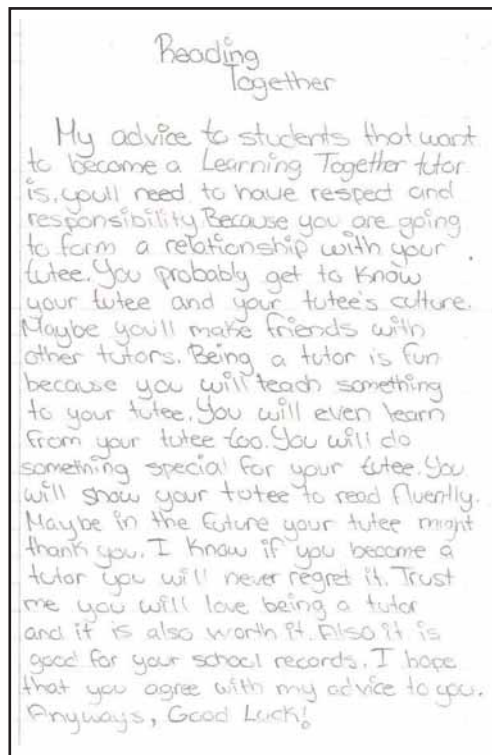 Reading
Together
My advice to students that want
to become a Learning Together tutor
is, youll need to have respect and
responsibility. Because you are going
to form a relationship with your
tutee. You probably get to know
your tutee and your tutee's culture.
Maybe you'll make friends with
other tutors. Being a tutor is fun
because you will teach something
to your tutee. You will even learn
from your tutee too. You will do
something special for your tutee. You
will show your tutee to read fluently.
Maybe in the future your tutee might
thank you. I know if you become a
tutor you will never regret it. Trust
me you will love being a tutor
and it is also worth it. Also it is
good for your school records. I hope
that you agree with my advice to you.
Anyways, Good Luck!